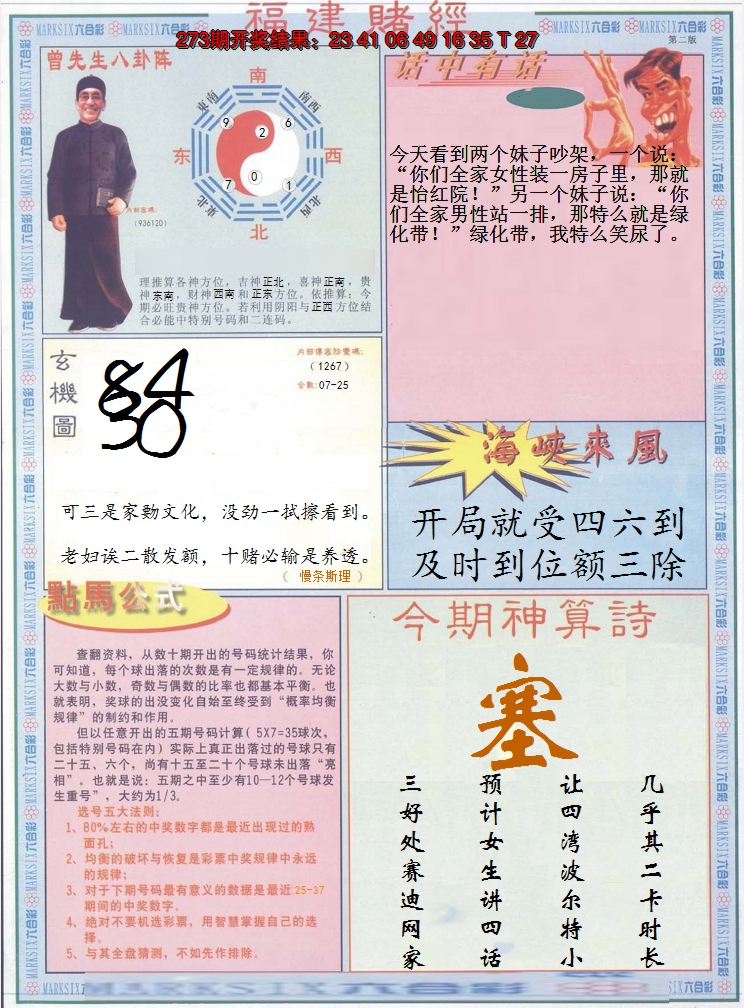 福建賭經
273期开奖结果：23 41 06 49 16 35 T 27
第二版
MARKSIX六合彩
曾先生八卦阵
南
東南
南西
9
2
6
东
西
7
0
1
東北
北西
北
内部密碼:
(936120)
理推算各神方位，吉神正北，喜神正南，贵
神东南，财神西南和正东方位。依推算：今
期必旺贵神方位。若利用阴阳与正西方位结
合必能中特别号码和二连码。
话中有话
今天看到两个妹子吵架，一个说：
“你们全家女性装一房子里，那就
是怡红院！”另一个妹子说：“你
们全家男性站一排，那特么就是绿
化带！”绿化带，我特么笑尿了。
玄機圖
84
30
(1267)
合数:07-25
可三是家勤文化，没劲一拭擦看到。
老妇诶二散发额，十赌必输是养透。
（ 慢条斯理 ）
海峽來風
开局就受四六到
及时到位额三除
點馬公式
查翻资料，从数十期开出的号码统计结果，你
可知道，每个球出落的次数是有一定规律的。无论
大数与小数，奇数与偶数的比率也都基本平衡。也
就表明，奖球的出没变化自始至终受到“概率均衡
规律”的制约和作用。
但以任意开出的五期号码计算( 5X7=35球次，
包括特别号码在内) 实际上真正出落过的号球只有
二十五、六个，尚有十五至二十个号球未出落“亮
相”。也就是说：五期之中至少有10—12个号球发
生重号”，大约为1/3。
选号五大法则:
1、80%左右的中奖数字都是最近出现过的熟
面孔;
2、均衡的破坏与恢复是彩票中奖规律中永远
的规律;
3、对于下期号码最有意义的数据是最近25-37
期间的中奖数字。
4、绝对不要机选彩票，用智慧掌握自己的选
择。
5、与其全盘猜测，不如先作排除。
今期神算詩
塞
几乎其二卡时长
让四湾波尔特小
预计女生讲四话
三好处赛迪网家